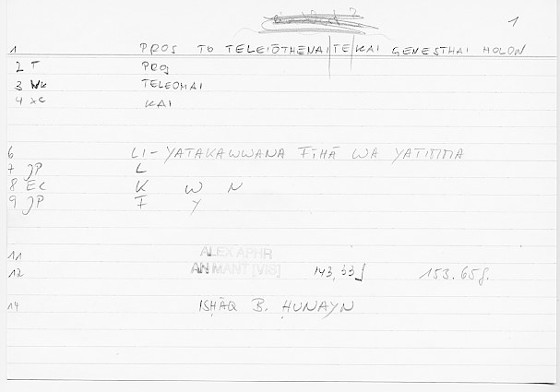 1
1 PROS TO TELEIŌTHENAI TE KAI GENESTHAI HOLON
2 T PROS
3 WK TELEOMAI
4 XC KAI
6 LI-YATAKAWWANA FĪHĀ WA YATIMMA
7 JP L
8 EC K W N
9 JP F Y
11 ALEX APHR
12 AN MANT [VIS] 143,33f 153.65f.
14 ISḤĀQ B. ḤUNAYN